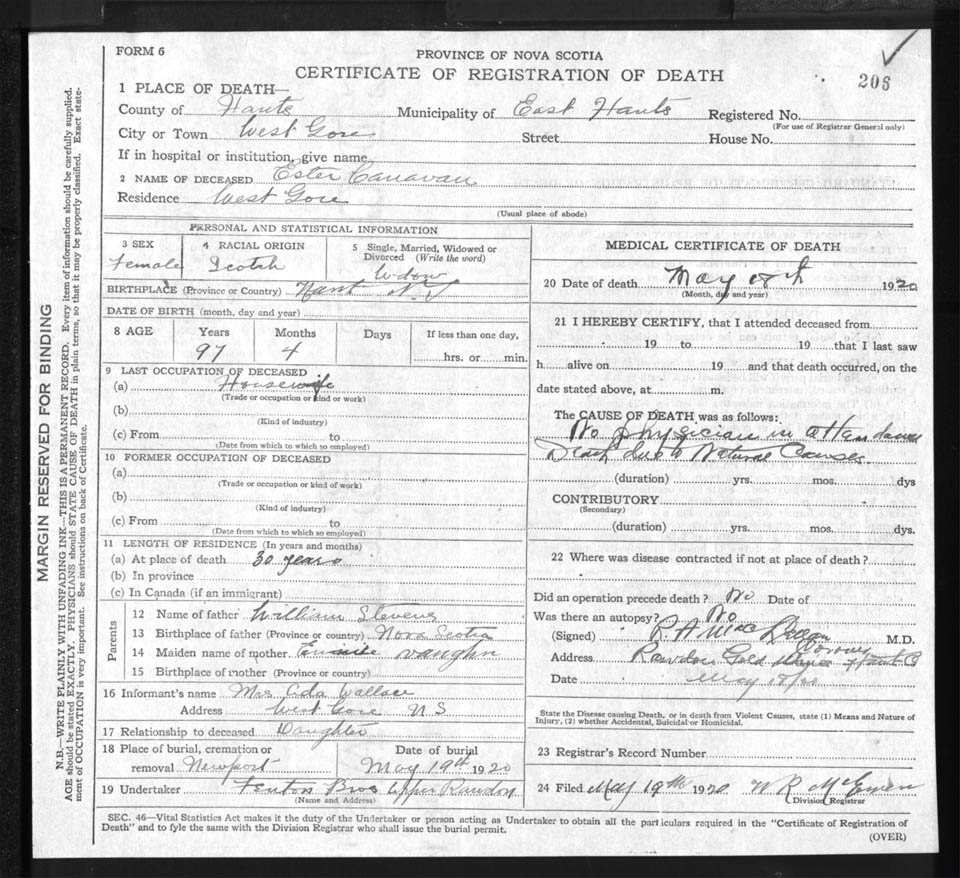 FORM 6
PROVINCE OF NOVA SCOTIA
CERTIFICATE OF REGISTRATION OF DEATH
206
1 PLACE OF DEATH—
County of Hants Municipality of East Hants Registered No.
(For use of Registrar General only)
City or Town West Gore Street House No.
If in hospital or institution, give name
2 NAME OF DECEASED Ester Canavan
Residence West Gore
(Usual place of abode)
PERSONAL AND STATISTICAL INFORMATION
3 SEX 4 RACIAL ORIGIN 5 Single, Married, Widowed or Divorced (Write the word)
Female Scotch Widow
BIRTHPLACE (Province or Country) Hant N.S
DATE OF BIRTH (month, day and year)
8 AGE Years Months Days If less than one day,
97 4 hrs. or min.
9 LAST OCCUPATION OF DECEASED
(a) Housewife
(Trade or occupation or kind of work)
(b)
(Kind of industry)
(c) From to
(Date from which to which so employed)
10 FORMER OCCUPATION OF DECEASED
(a)
(Trade or occupation or kind of work)
(b)
(Kind of industry)
(c) From to
(Date from which to which so employed)
11 LENGTH OF RESIDENCE (In years and months)
(a) At place of death 30 years
(b) In province
(c) In Canada (if an immigrant)
Parents
12 Name of father William Stevens
13 Birthplace of father (Province or country) Nova Scotia
14 Maiden name of mother vaughn
15 Birthplace of mother (Province or country)
16 Informant's name Mrs Wallace
Address West Gore N S
17 Relationship to deceased Daughter
18 Place of burial, cremation or Date of burial
removal Newport May 19th 1920
19 Undertaker Fenton Bros Upper Rawdon
(Name and Address)
MEDICAL CERTIFICATE OF DEATH
20 Date of death May 18th 1920
(Month, day and year)
21 I HEREBY CERTIFY, that I attended deceased from
19 to 19 that I last saw
h alive on 19 and that death occurred, on the
date stated above, at m.
The CAUSE OF DEATH was as follows:
No physician in attendance
Death due to Natural Causes
(duration) yrs. mos. dys
CONTRIBUTORY
(Secondary)
(duration) yrs. mos. dys.
22 Where was disease contracted if not at place of death?
Did an operation precede death? No Date of
Was there an autopsy? No
(Signed) R A Mac M.D.
Coroner
Address Rawdon Gold Mines Hants Co
Date May 18/20
State the Disease causing Death, or in death from Violent Causes, state (1) Means and Nature of
Injury, (2) whether Accidental, Suicidal or Homicidal.
23 Registrar's Record Number
24 Filed May 19th 1920 McEwen
Division Registrar
SEC. 46—Vital Statistics Act makes it the duty of the Undertaker or person acting as Undertaker to obtain all the particulars required in the "Certificate of Registration of
Death" and to fyle the same with the Division Registrar who shall issue the burial permit.
(OVER)
MARGIN RESERVED FOR BINDING
N.B.—WRITE PLAINLY WITH UNFADING INK—THIS IS A PERMANENT RECORD. Every item of information should be carefully supplied.
AGE should be stated EXACTLY. PHYSICIANS should STATE CAUSE OF DEATH in plain terms, so that it may be properly classified. Exact state-
ment of OCCUPATION is very important. See instructions on back of Certificate.